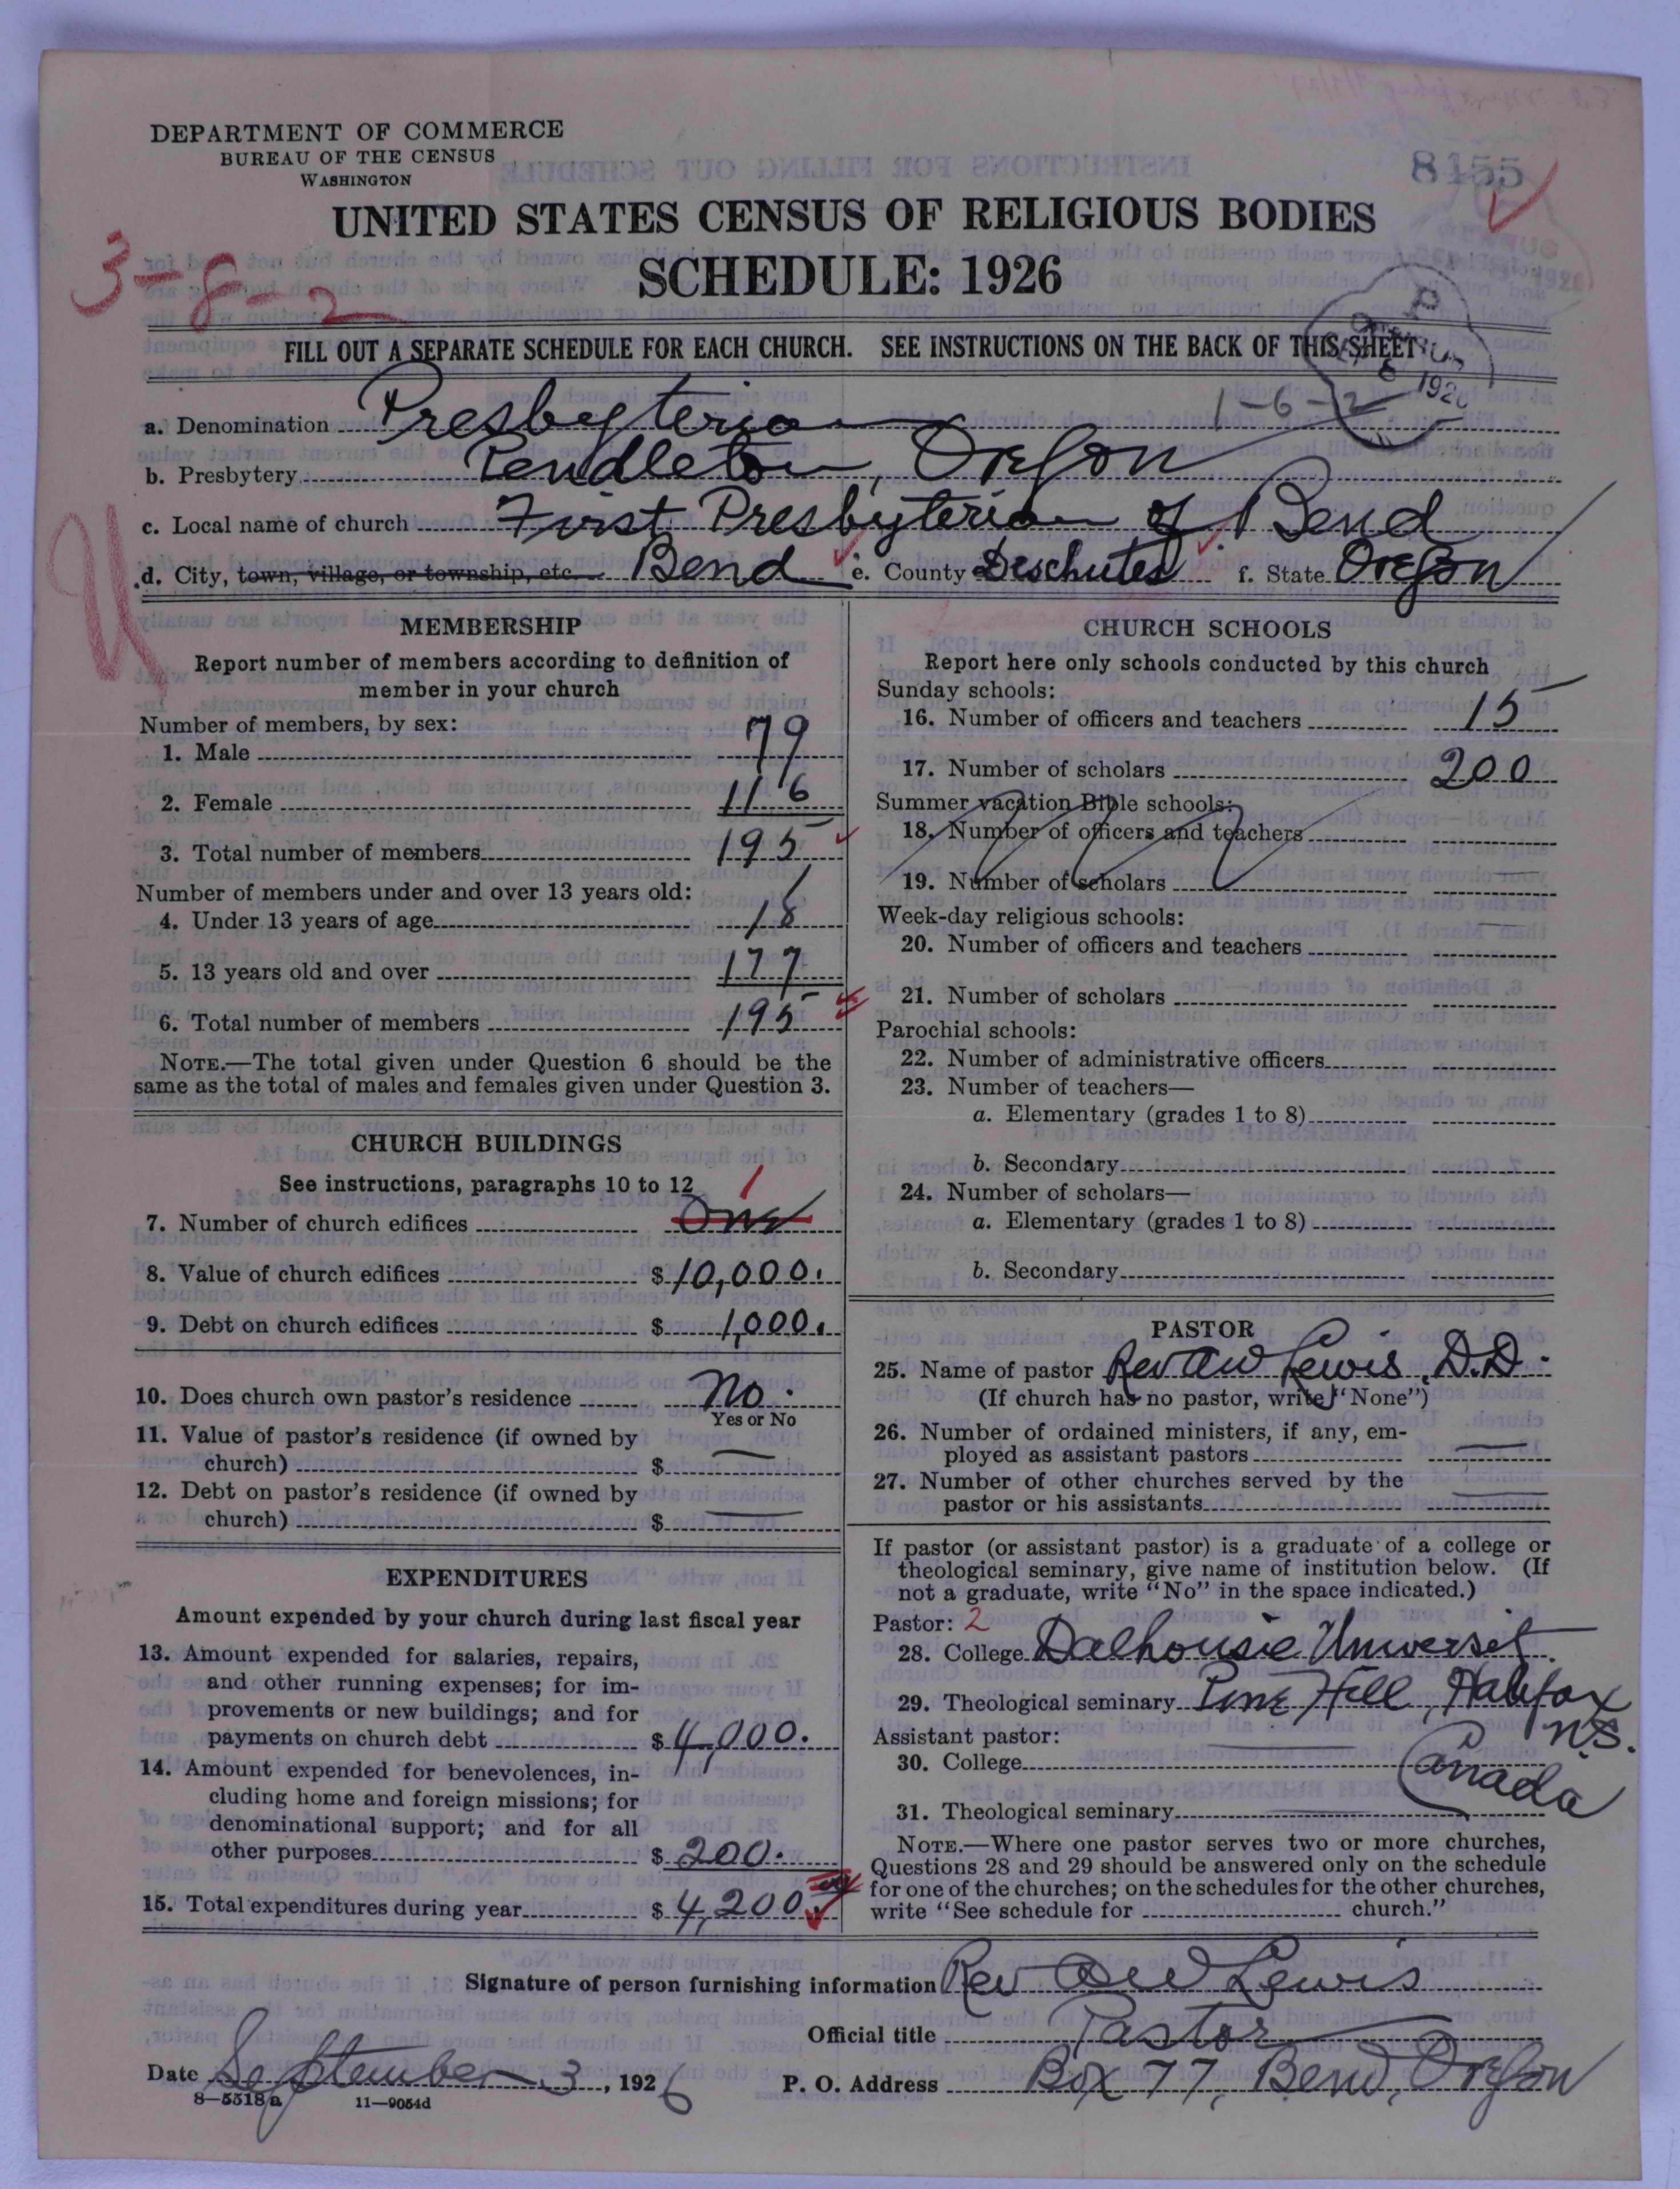 DEPARTMENT OF COMMERCE
BUREAU OF THE CENSUS
WASHINGTON
8455
UNITED STATES CENSUS OF RELIGIOUS BODIES
SCHEDULE: 1926
3-8-2
FILL OUT A SEPARATE SCHEDULE FOR EACH CHURCH. SEE INSTRUCTIONS ON THE BACK OF THIS SHEET
1-6-2
a. Denomination Presbyterian
b. Presbytery Pendleton, Oregon
c. Local name of church First Presbyterian of Bend
d. City, town, village, or township, etc. Bend e. County Deschutes f. State Oregon
U
MEMBERSHIP
Report number of members according to definition of
member in your church
Number of members, by sex:
1. Male 79
2. Female 116
3. Total number of members 195
Number of members under and over 13 years old:
4. Under 13 years of age 18
5. 13 years old and over 177
6. Total number of members 195
NOTE.—The total given under Question 6 should be the
same as the total of males and females given under Question 3.
CHURCH BUILDINGS
See instructions, paragraphs 10 to 12
1
7. Number of church edifices One
8. Value of church edifices $10,000.
9. Debt on church edifices $ 1,000.
10. Does church own pastor's residence No.
Yes or No
11. Value of pastor's residence (if owned by
church) $ —
12. Debt on pastor's residence (if owned by
church) $ —
EXPENDITURES
Amount expended by your church during last fiscal year
13. Amount expended for salaries, repairs,
and other running expenses; for im-
provements or new buildings; and for
payments on church debt $4,000.
14. Amount expended for benevolences, in-
cluding home and foreign missions; for
denominational support; and for all
other purposes $ 200.
15. Total expenditures during year $ 4,200.
CHURCH SCHOOLS
Report here only schools conducted by this church
Sunday schools:
16. Number of officers and teachers 15
17. Number of scholars 200
Summer vacation Bible schools:
18. Number of officers and teachers
19. Number of scholars
Week-day religious schools:
20. Number of officers and teachers
21. Number of scholars
Parochial schools:
22. Number of administrative officers
23. Number of teachers—
a. Elementary (grades 1 to 8)
b. Secondary
24. Number of scholars—
a. Elementary (grades 1 to 8)
b. Secondary
PASTOR
25. Name of pastor Rev AW Lewis, D.D.
(If church has no pastor, write "None")
26. Number of ordained ministers, if any, em-
ployed as assistant pastors —
27. Number of other churches served by the
pastor or his assistants —
If pastor (or assistant pastor) is a graduate of a college or
theological seminary, give name of institution below. (If
not a graduate, write "No" in the space indicated.)
Pastor: 2
28. College Dalhousie Universit.
29. Theological seminary Pine Hill, Halifax
N.S.
Canada
Assistant pastor:
30. College
31. Theological seminary
NOTE.—Where one pastor serves two or more churches,
Questions 28 and 29 should be answered only on the schedule
for one of the churches; on the schedules for the other churches,
write "See schedule for church."
Signature of person furnishing information Rev AW Lewis
Official title Pastor
Date September 3, 1926 P. O. Address Box 77, Bend, Oregon
8—5518a 11—9054d